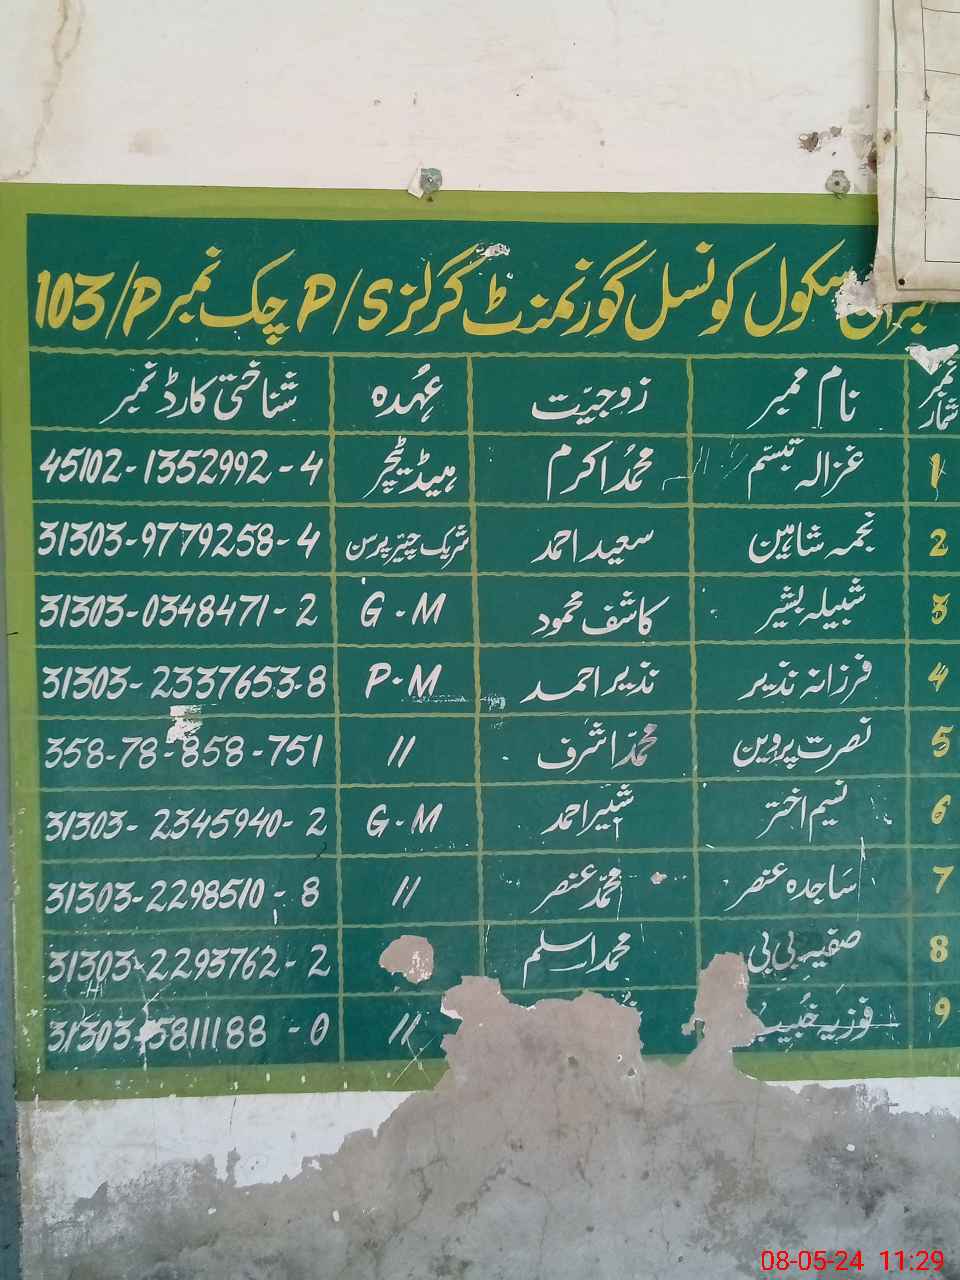 سکول کونسل گورنمنٹ گرلز P/S چک نمبر 103/P
نمبر شمار نام ممبر زوجیت عہدہ شناختی کارڈ نمبر
1 غزالہ تبسّم محمد اکرم ہیڈ ٹیچر 45102-1352992-4
2 نجمہ شاہین سعید احمد شریک چیئر پرسن 31303-9779258-4
3 شبیلہ بشیر کاشف محمود G-M 31303-0348471-2
4 فرزانہ نذیر نذیر احمد P-M 31303-2337653-8
5 نصرت پروین محمد اشرف // 358-78-858-751
6 نسیم اختر شبیر احمد G-M 31303-2345940-2
7 ساجدہ عنصر محمد عنصر // 31303-2298510-8
8 صفیہ بی بی محمد اسلم 31303-2293762-2
9 فوزیہ // 31303-5811188-0
08-05-24 11:29